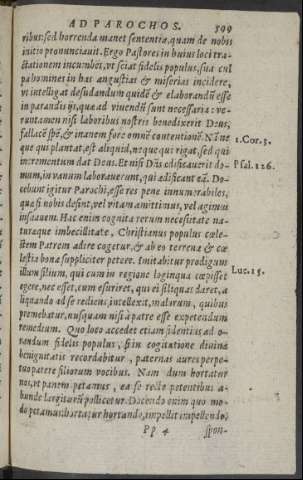 AD PAROCHOS. 599
ribus: sed horrenda manet sententia, quam de nobis
initio pronunciauit. Ergo Pastores in huius loci tra-
ctationem incumbēt, vt sciat fidelis populus, sua cul
pa homines in has angustias & miserias incidere,
vt intelligat desudandum quidē & elaborandū esse
in parandis ijs, quæ ad viuendū sunt necessaria: ve-
runtamen nisi laboribus nostris benedixerit Deus,
fallacē spē, & inanem fore omnē contentionē. Nā ne
que qui plantat, est aliquid, neque qui rigat, sed qui
incrementum dat Deus. Et nisi Dn̄s ædificauerit do-
mum, in vanum laborauerūt, qui ædificant eā. Do-
cebunt igitur Parochi, esse res pene innumerabiles,
quæ si nobis desint, vel vitam amittimus, vel agimus
insuauem. Hac enim cognita rerum necessitate na-
turæque imbecillitate, Christianus populus cœle-
stem Patrem adire cogetur, & ab eo terrena & cœ
lestia bona suppliciter petere. Imitabitur prodigum
illum filium, qui cum in regione longinqua cœpisset
egere, nec esset, cum esuriret, qui ei siliquas daret, a
liquando ad se rediens, intellexit, malorum, quibus
premebatur, nusquam nisi à patre esse expetendum
remedium. Quo loco accedet etiam fidentius ad o-
randum fidelis populus, si in cogitatione diuinæ
benignitatis recordabitur, paternas aures perpe-
tuo patere filiorum vocibus. Nam dum hortatur
nos, vt panem petamus, ea se recte petentibus a-
bunde largiturū pollicetur. Docendo enim quo mo-
do petamus, hortatur hortando, impellit impellendo,
Pp 4 spon-
1. Cor. 3.
Psal. 126.
Luc. 15.